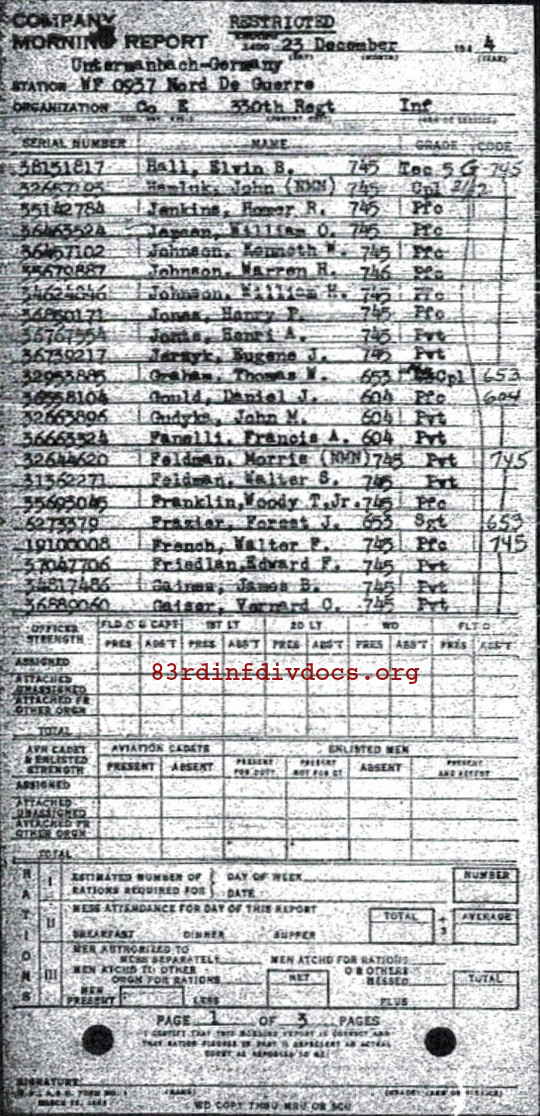 COMPANY RESTRICTED
MORNING REPORT 2400 23 December 194 4
Untermaubach-Germany
STATION WF 0937 Nord De Guerre
ORGANIZATION Co E 330th Regt Inf
SERIAL NUMBER NAME GRADE CODE
38151817 Hall, Elvin B. 745 Tec 5 G 745
John (NMN) 745 Cpl
35142784 Jenkins, Homer R. 745 Pfc
36463524 William O. 745 Pfc
36457102 Johnson, Kenneth W. 745 Pfc
35670887 Johnson, Warren H. 746 Pfc
34624646 Johnson, William H. 745 Pfc
36890171 Jones, Henry P. 745 Pfc
36767554 Henri A. 745 Pvt
36739217 Jarzyk, Eugene J. 745 Pvt
32953885 Graham, Thomas W. 653 Cpl 653
36558104 Gould, Daniel J. 604 Pfc 604
32663896 Gudyka, John M. 604 Pvt
36663324 Fanelli, Francis A. 604 Pvt
32644620 Feldman, Morris (NMN) 745 Pvt 745
31362271 Feldman, Walter S. 745 Pvt
35693045 Franklin, Woody T, Jr. 745 Pfc
6273370 Frazier, Forest J. 653 Sgt 653
19100008 French, Walter F. 745 Pfc 745
37047706 Friedlan, Edward F. 745 Pvt
34817486 Gaines, James B. 745 Pvt
36880060 Gaiser, Vernard C. 745 Pvt
OFFICER STRENGTH FLD O & CAPT 1ST LT 2D LT WO FLT O
PRES ABS'T PRES ABS'T PRES ABS'T PRES ABS'T PRES ABS'T
ASSIGNED
ATTACHED UNASSIGNED
83rdinfdivdocs.org
ATTACHED FR OTHER ORGN
TOTAL
AVN CADET & ENLISTED STRENGTH AVIATION CADETS ENLISTED MEN
PRESENT ABSENT PRESENT FOR DUTY PRESENT NOT FOR DY ABSENT PRESENT AND ABSENT
ASSIGNED
ATTACHED UNASSIGNED
ATTACHED FR OTHER ORGN
TOTAL
RATIONS
I ESTIMATED NUMBER OF RATIONS REQUIRED FOR DAY OF WEEK DATE NUMBER
II MESS ATTENDANCE FOR DAY OF THIS REPORT TOTAL ÷ 3 AVERAGE
BREAKFAST DINNER SUPPER
III MEN AUTHORIZED TO MESS SEPARATELY MEN ATCHD FOR RATIONS
MEN ATCHD TO OTHER ORGN FOR RATIONS NET O & OTHERS MESSED TOTAL
MEN PRESENT LESS PLUS
PAGE 1 OF 3 PAGES
I CERTIFY THAT THIS MORNING REPORT IS CORRECT AND
THAT RATION FIGURES IN PART II REPRESENT AN ACTUAL
COUNT AS REPORTED TO ME
SIGNATURE
FORM NO. 1 (NAME) (GRADE)
WD COPY THRU MRU OR SCU